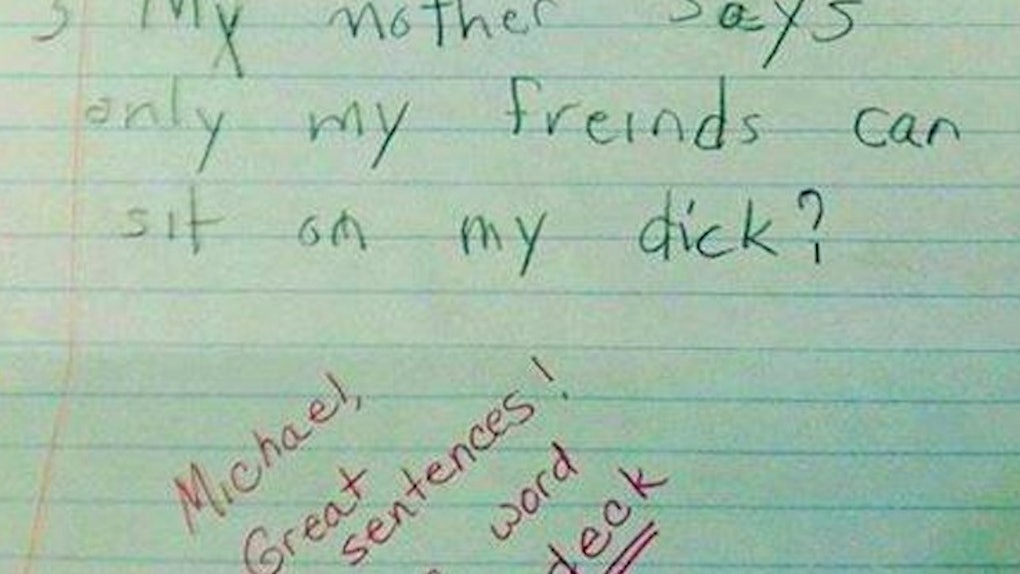 3 My mother says
only my freinds can
sit on my dick?
Michael,
Great
sentences!
word
deck